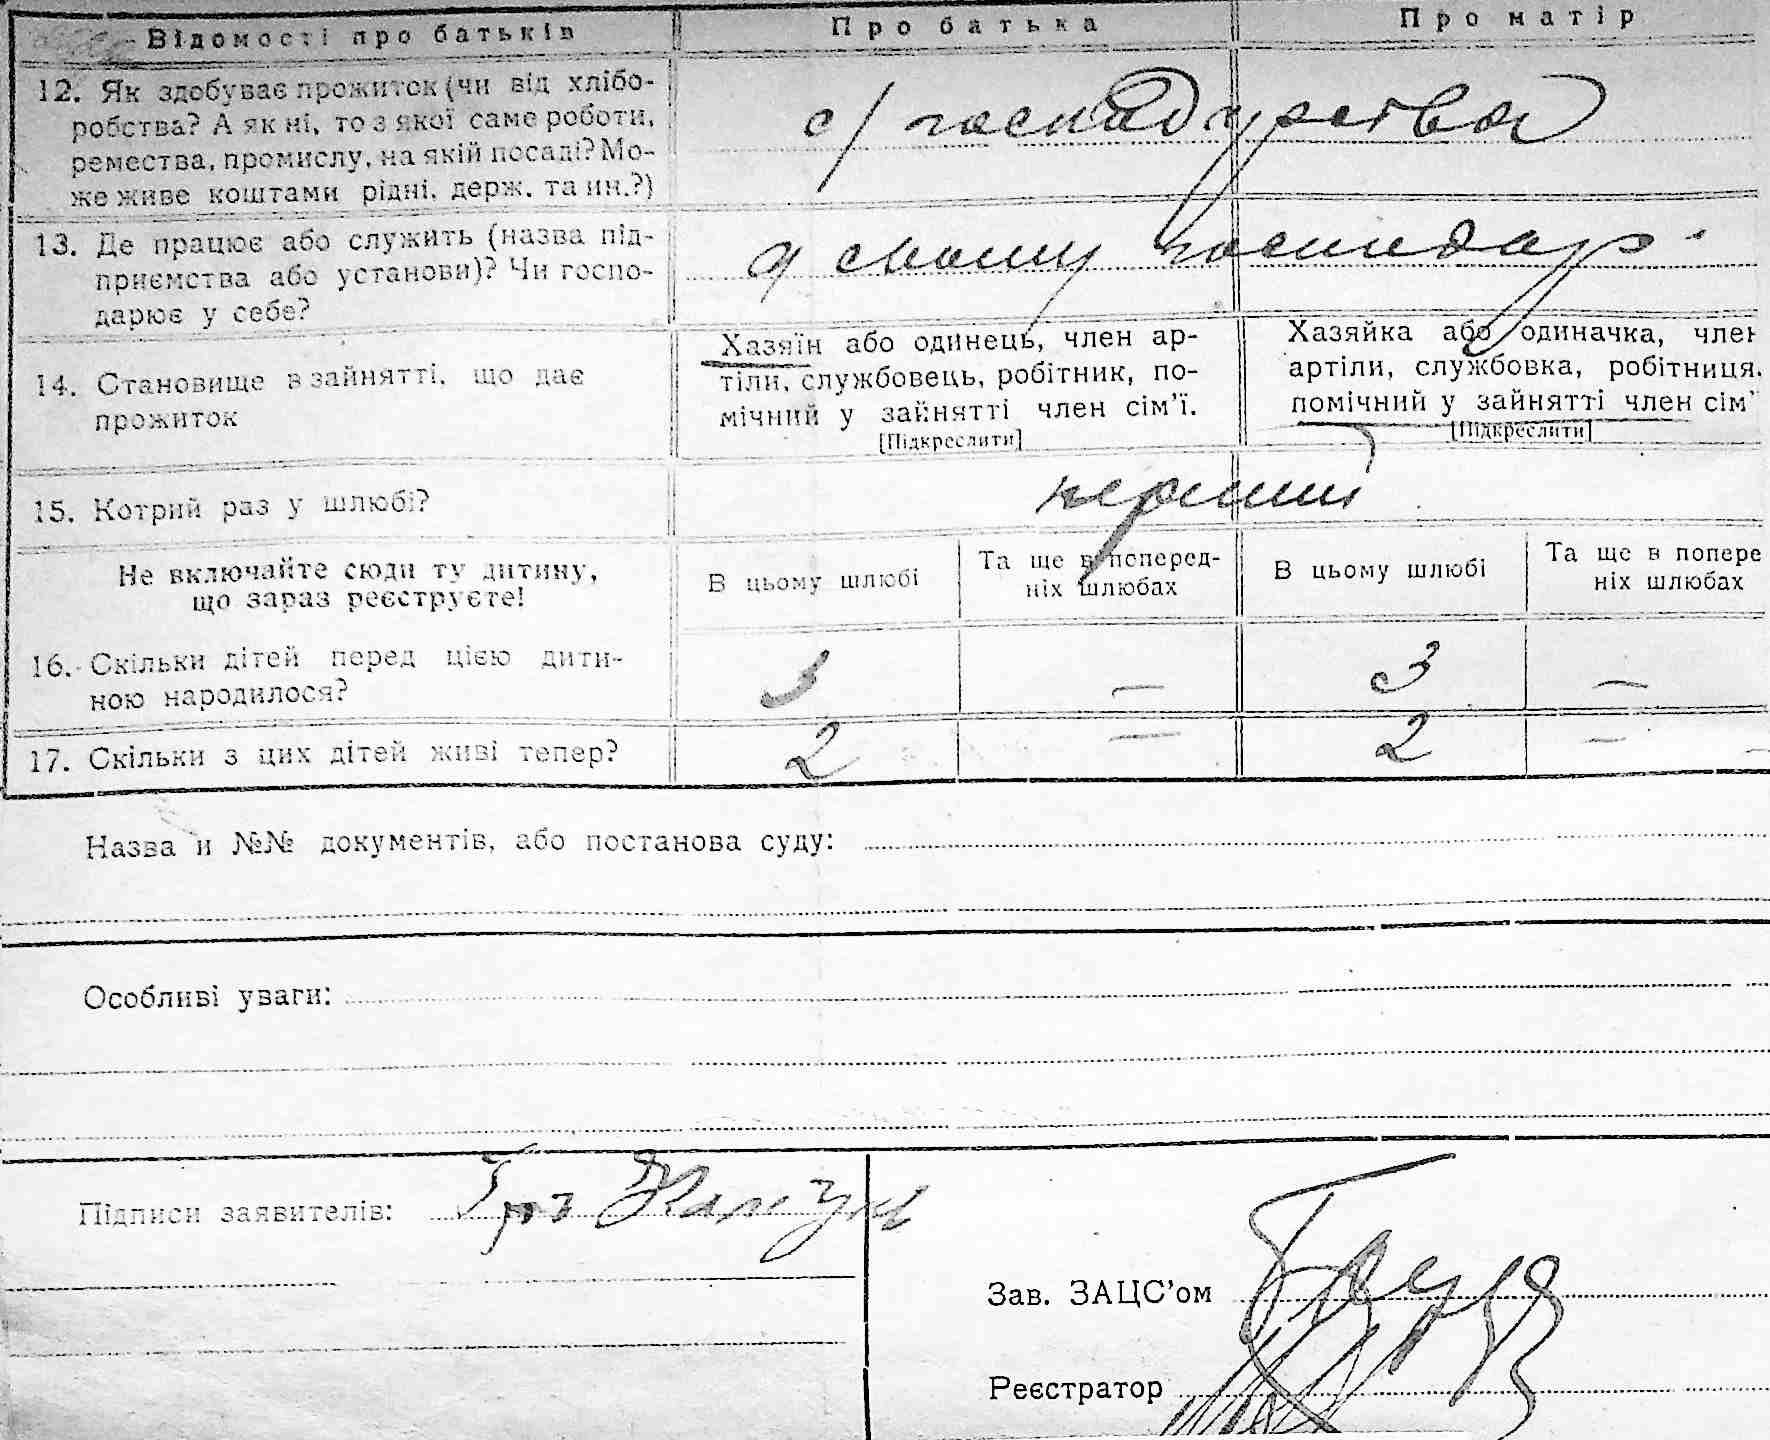 Відомості про батьків Про батька Про матір
12. Як здобуває прожиток (чи від хлібо-
робства? А як ні, то з якої саме роботи,
ремества, промислу, на якій посаді? Мо-
же живе коштами рідні, держ. та ин.?)
с/господарства
13. Де працює або служить (назва під-
приємства або установи)? Чи госпо-
дарює у себе?
у своему господар.
14. Становище в зайнятті, що дає
прожиток
Хазяїн або одинець, член ар-
тіли, службовець, робітник, по-
мічний у зайнятті член сім’ї.
[Підкреслити]
Хазяйка або одиначка, член
артіли, службовка, робітниця,
помічний у зайнятті член сім’
[Підкреслити]
15. Котрий раз у шлюбі?
перший
Не включайте сюди ту дитину,
що зараз реєструєте!
В цьому шлюбі
Та ще в поперед-
ніх шлюбах
В цьому шлюбі
Та ще в попере
ніх шлюбах
16. Скільки дітей перед цією дити-
ною народилося?
3 — 3 —
17. Скільки з цих дітей живі тепер?
2 — 2 —
Назва и №№ документів, або постанова суду:
Особливі уваги:
Підписи заявителів:
Зав. ЗАЦС’ом
Реєстратор